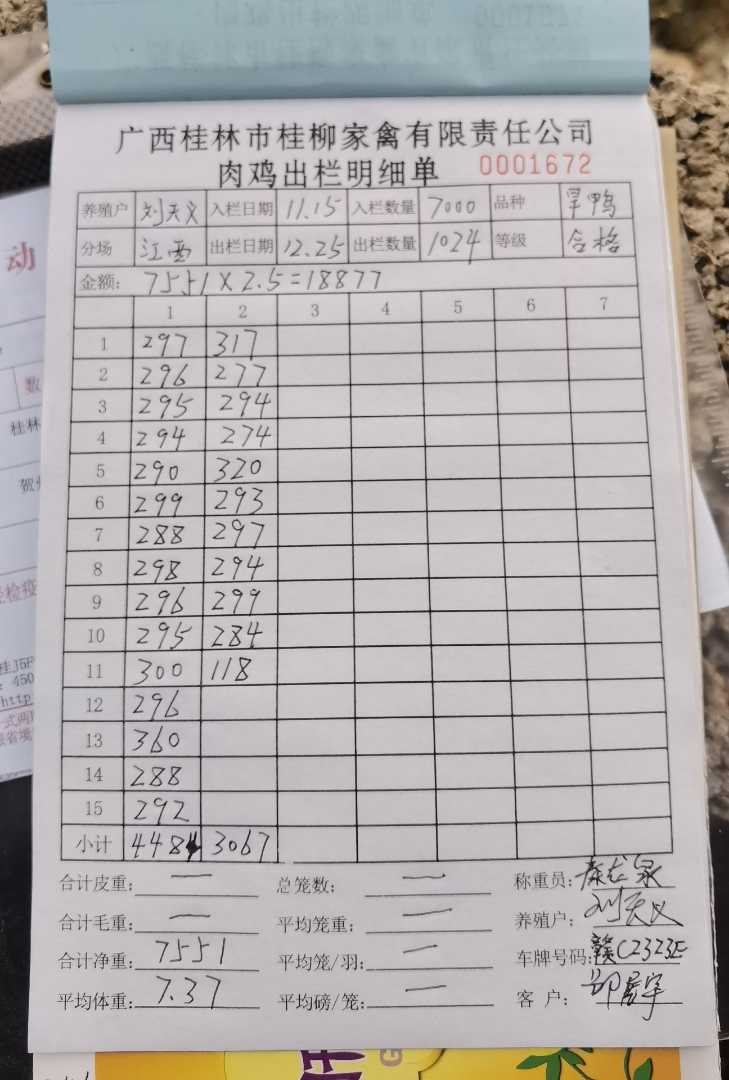 广西桂林市桂柳家禽有限责任公司
肉鸡出栏明细单 0001672
养殖户 刘天义 入栏日期 11.15 入栏数量 7000 品种 旱鸭
分场 江西 出栏日期 12.25 出栏数量 1024 等级 合格
金额: 7551×2.5=18877
1 2 3 4 5 6 7
1 297 317
2 296 277
3 295 294
4 294 274
5 290 320
6 299 293
7 288 297
8 298 294
9 296 299
10 295 284
11 300 118
12 296
13 360
14 288
15 292
小计 4484 3067
合计皮重: — 总笼数: — 称重员:
合计毛重: — 平均笼重: — 养殖户: 刘天义
合计净重: 7551 平均笼/羽: — 车牌号码: 赣C2323E
平均体重: 7.37 平均磅/笼: — 客户:
动
数
桂林
贺州
检疫
桂J5P
450
http
一式两
省境